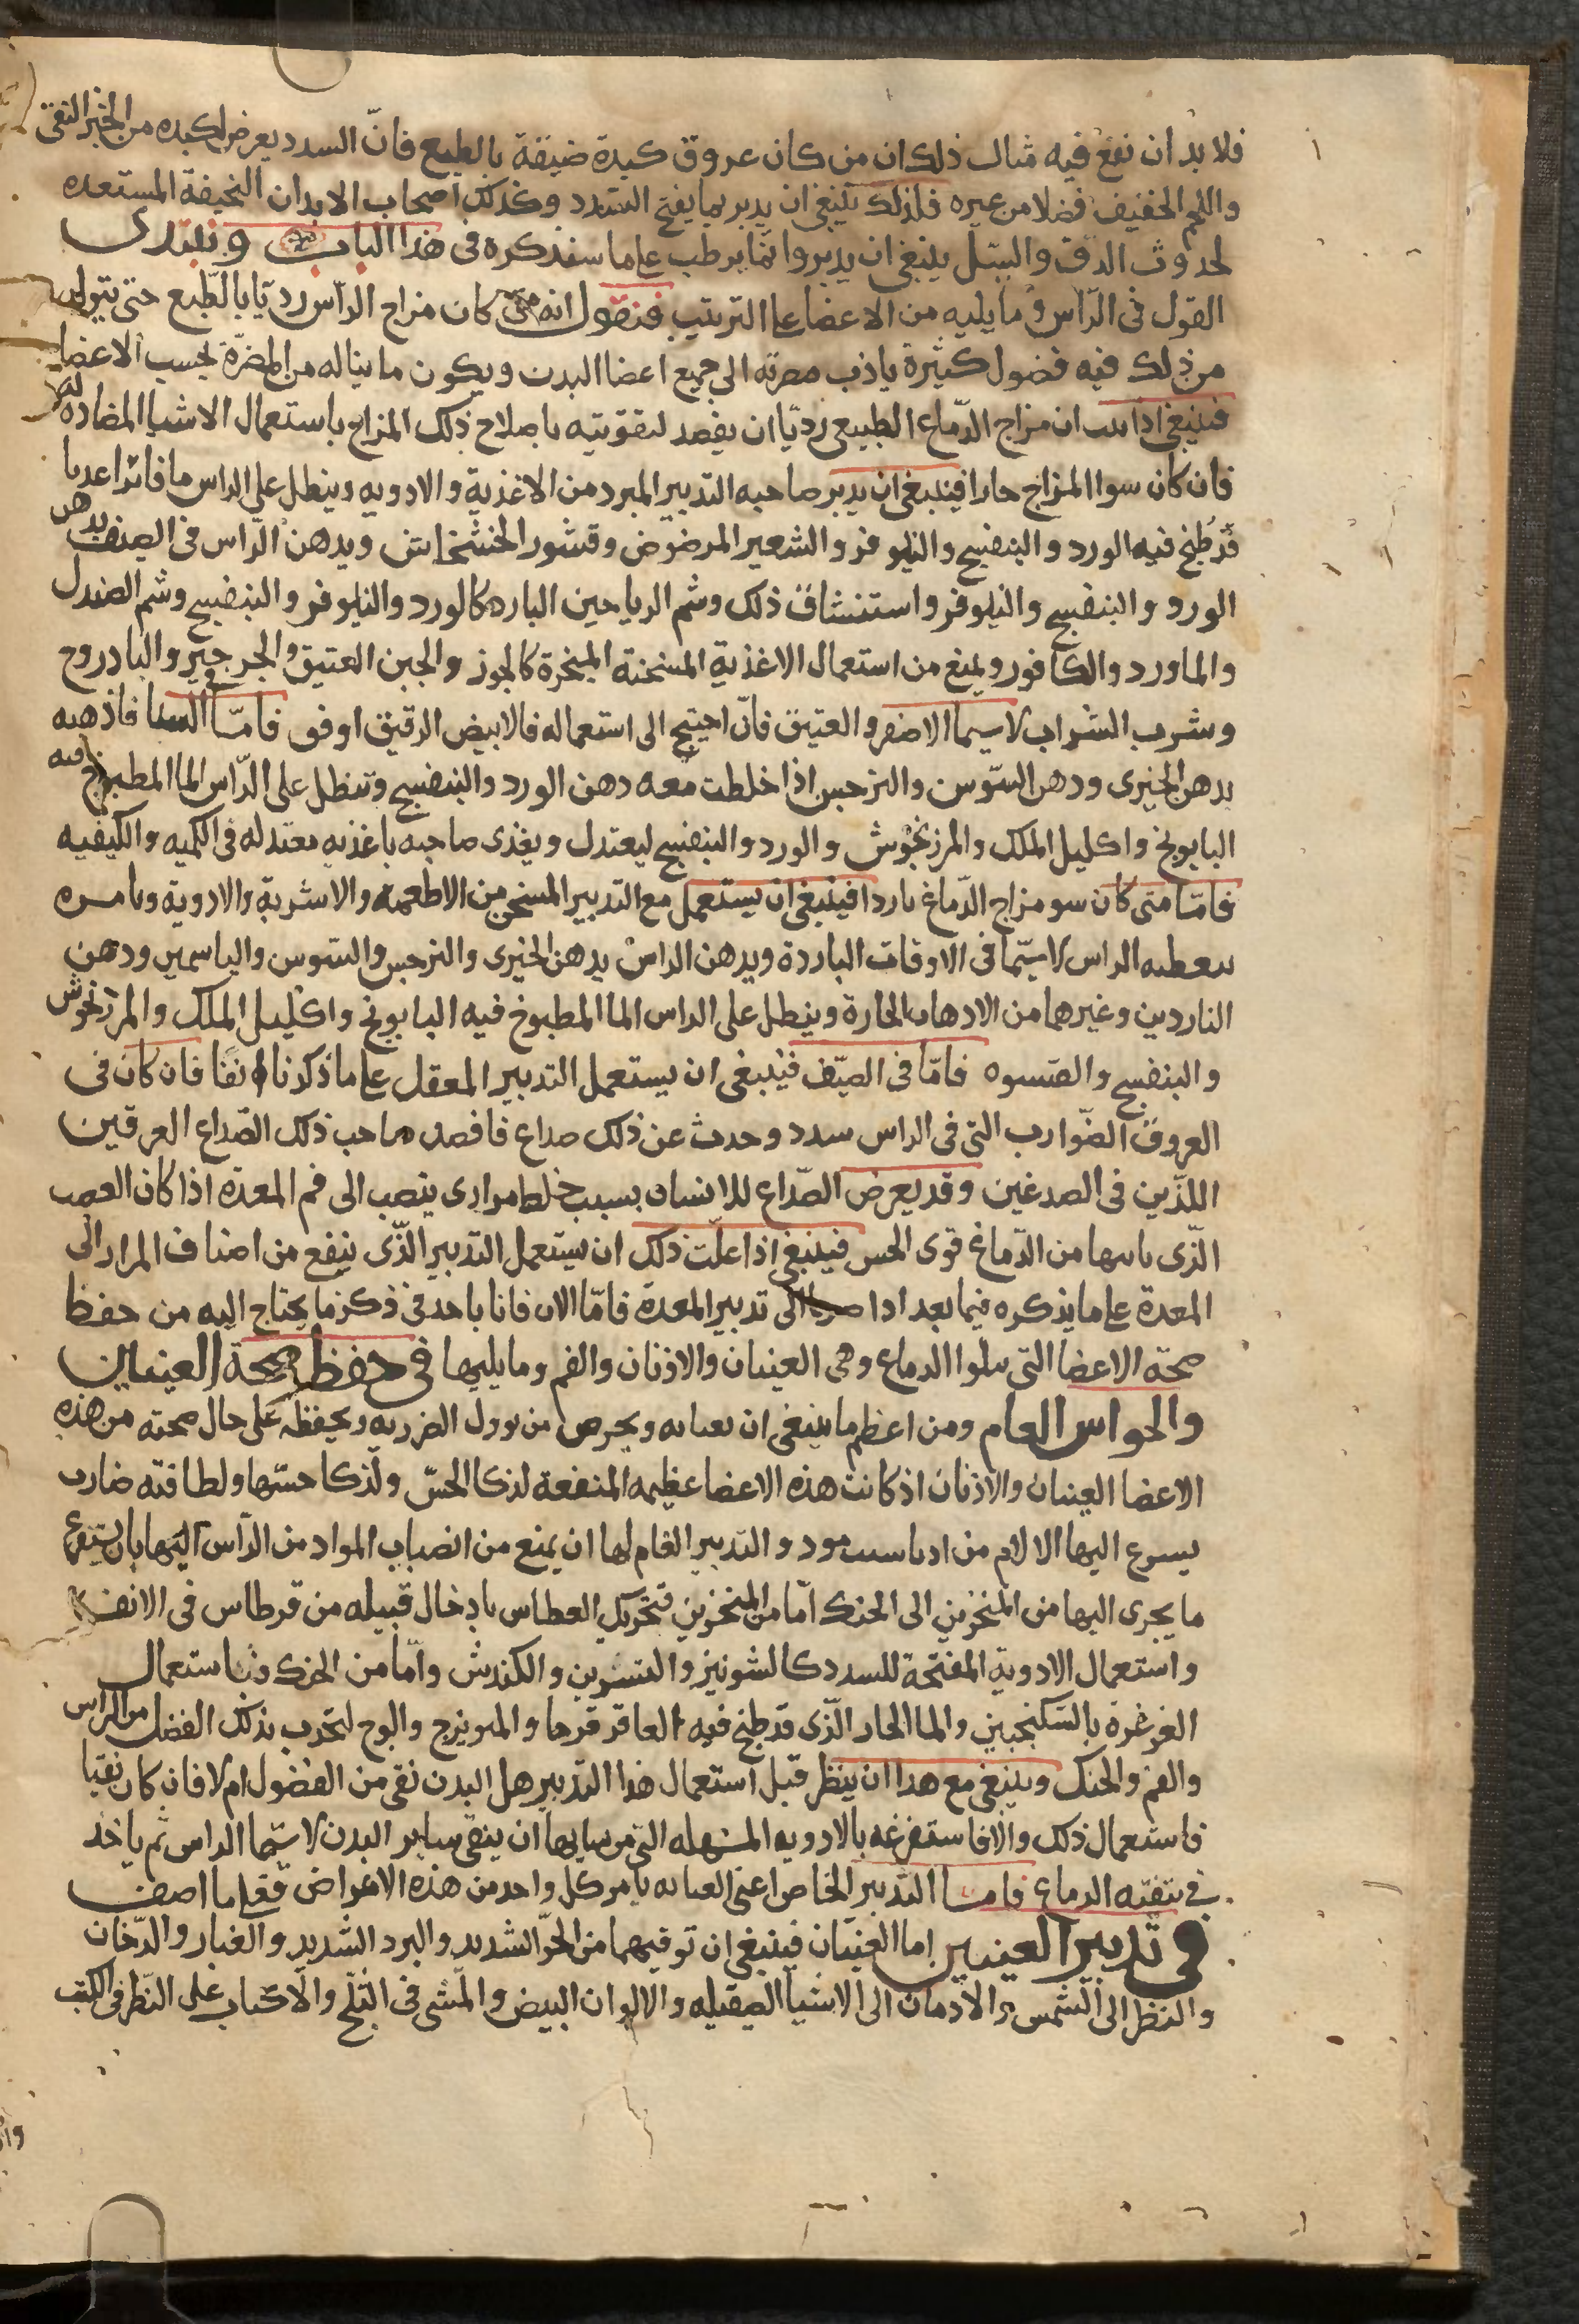 فلا بد ان نفع فيه مثال ذلك ان من كان عروق كبدة ضيقة بالطبع فانّ السدد يعرض لكبده من الخبز النقى
واللحم الخفيف فضلا من غيره فلذلك ينبغى ان يدبر بما يفتح السدد وكذلك اصحاب الابدان النحيفة المستعده
لحدوث الدق والسل ينبغى ان يدبروا بما يرطب على ما سنذكره فى هذا الباب ونبتدى
القول فى الرّاس وما يليه من الاعضا على الترتيب فنقول انه متى كان مزاج الرّاس رديّا بالطّبع حتى يتولد
من ذلك فيه فضول كثيرة ياذب مضرته الى جميع اعضا البدن ويكون ما يناله من المضرّة بحسب الاعضا
فينبغى اذا ان مزاج الدّماغ الطبيعى رديّا ان يقصد لتقويته باصلاح ذلك المزاج باستعمال الاشيا المضاده له
فان كان سوا المزاج حارا فينبغى ان يدبر صاحبه التدبير المبرد من الاغذية والادويه وينطل على الراس ما فاترا عدبا
قد طبخ فيه الورد والبنفسج والنيلوفر والشعير المرضوض وقشور الخشخاش ويدهن الرّاس فى الصيف بدهن
الورد والبنفسج والنيلوفر واستنشاق ذلك وشم الرياحين البارده كالورد والنيلوفر والبنفسج وشم الصندل
والماورد والكافور ويمنع من استعمال الاغذية المسخنة المبخرة كالجوز والجبن العتيق والجرجير والبادروج
وشرب الشراب لاسيما الاصفر والعتيق فانّ احتيج الى استعماله فالابيض الرقيق اوفق فامّا فى الشتا فاذهبه
بدهن الخيرى ودهن السّوسن والنرجس اذا خلطت معه دهن الورد والبنفسج وتنطل على الرّاس الما المطبوخ فيه
البابونج واكليل الملك والمرزنجوش والورد والبنفسج ليعتدل ويغذى صاحبه باغذيه معتدله فى الكميه والكيفيه
فامّا متى كان سو مزاج الدّماغ باردا فينبغى ان يستعمل مع التدبير المسخن من الاطعمه والاشربة والادوية ويامره
بتغطيه الراس لاسيّما فى الاوقات الباردة ويدهن الراس بدهن الخيرى والنرجس والسّوسن والياسمين ودهن
الناردين وغيرهما من الادهان الحارة وينطل على الراس الما المطبوخ فيه البابونج واكليل الملك والمرزنجوش
والبنفسج فامّا فى الصيّف فينبغى ان يستعمل التدبير المعقل على ما ذكرنا انفا فان كان فى
العروق الضّوارب التى فى الراس سدد وحدث عن ذلك صداع فافصد صاحب ذلك الصّداع العرقين
اللذّين فى الصدغين وقد يعرض الصّداع للانسان بسبب خلط مرارى ينصب الى فم المعدة اذا كان العصب
الذّى ياتيها من الدّماغ قوى الحس فينبغى اذا علمت ذلك ان يستعمل التدبير الذّى ينفع من اصناف المرار الى
المعدة على ما يذكره فيما بعد اذا الى تدبير المعدة فامّا الان فانا باخذ فى ذكر ما يحتاج اليه من حفظ
صحّة الاعضا التى تتلوا الدماغ وهى العينان والاذنان والفم وما يليها فى حفظ صحة العينين
والحواس العام ومن اعظم ما ينبغى ان يعنا به ويحرص من نزول الضرر به ويحفظه على حال صحته من هذه
الاعضا العينان والاذنان اذ كانت هذه الاعضا عظيمه المنفعة لذكا الحسّ ولذكا حسّها ولطافته صارت
يسرع اليها الالام من ادنا سبب مود والتدبير العام لها ان يمنع من انصباب المواد من الرّاس اليها بان يستفرغ
ما يجرى اليها من المنخرين الى الحنك امّا من المنخرين فتحريك العطاس بادخال فتيله من قرطاس فى الانف
واستعمال الادوية المفتحة للسدد كالشونيز والنسرين والكندش وامّا من الحنك فباستعمال
الغرغرة بالسكنجبين والما الحار الذّى قد طبخ فيه العاقر قرحا والميويزج والوج لتجدب بذلك الفضل من الراس
والفم والحنك وينبغى مع هدا ان ينظر قبل استعمال هذا التدبير هل البدن نقى من الفضول ام لا فان كان نقيا
فاستعمال ذلك والا فاستفرغه بالادويه المسهله التى من شانها ان ينقى ساير البدن لاسيّما الراس ثم ياخذ
فى تنقيه الدماغ فامّا التدبير الخاص اعنى العنايه بامر كل واحد من هذه الاعراض فعلى ما اصف
فى تدبير العينين اما العينان فينبغى ان توقيهما من الحرّ الشديد والبرد الشديد والغبار والدّخان
والنظر الى الشّمس والادمان الى الاشيا الصقيله والالوان البيض والمشى فى الثلج والاكباب على النّظر فى الكتب